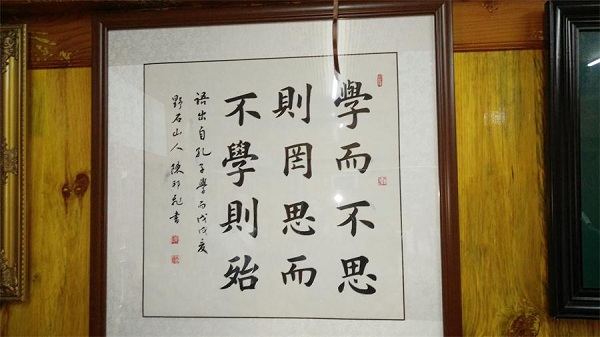 學而不思
則罔思而
不學則殆
語出自孔子學而戊戌夏
野石山人陳
書